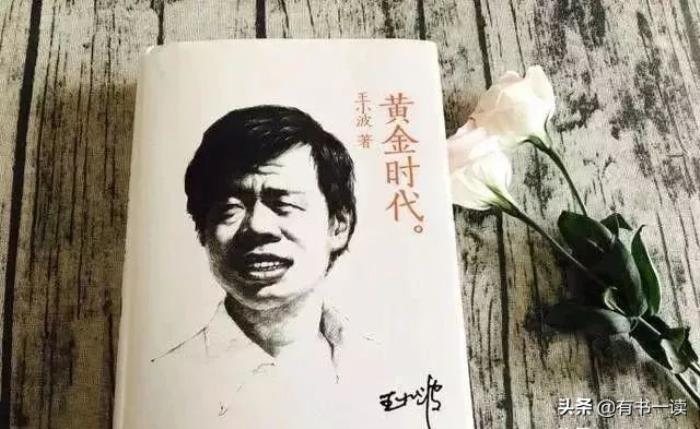 黄金时代。
王小波 著
王小波
头条 @有书一读